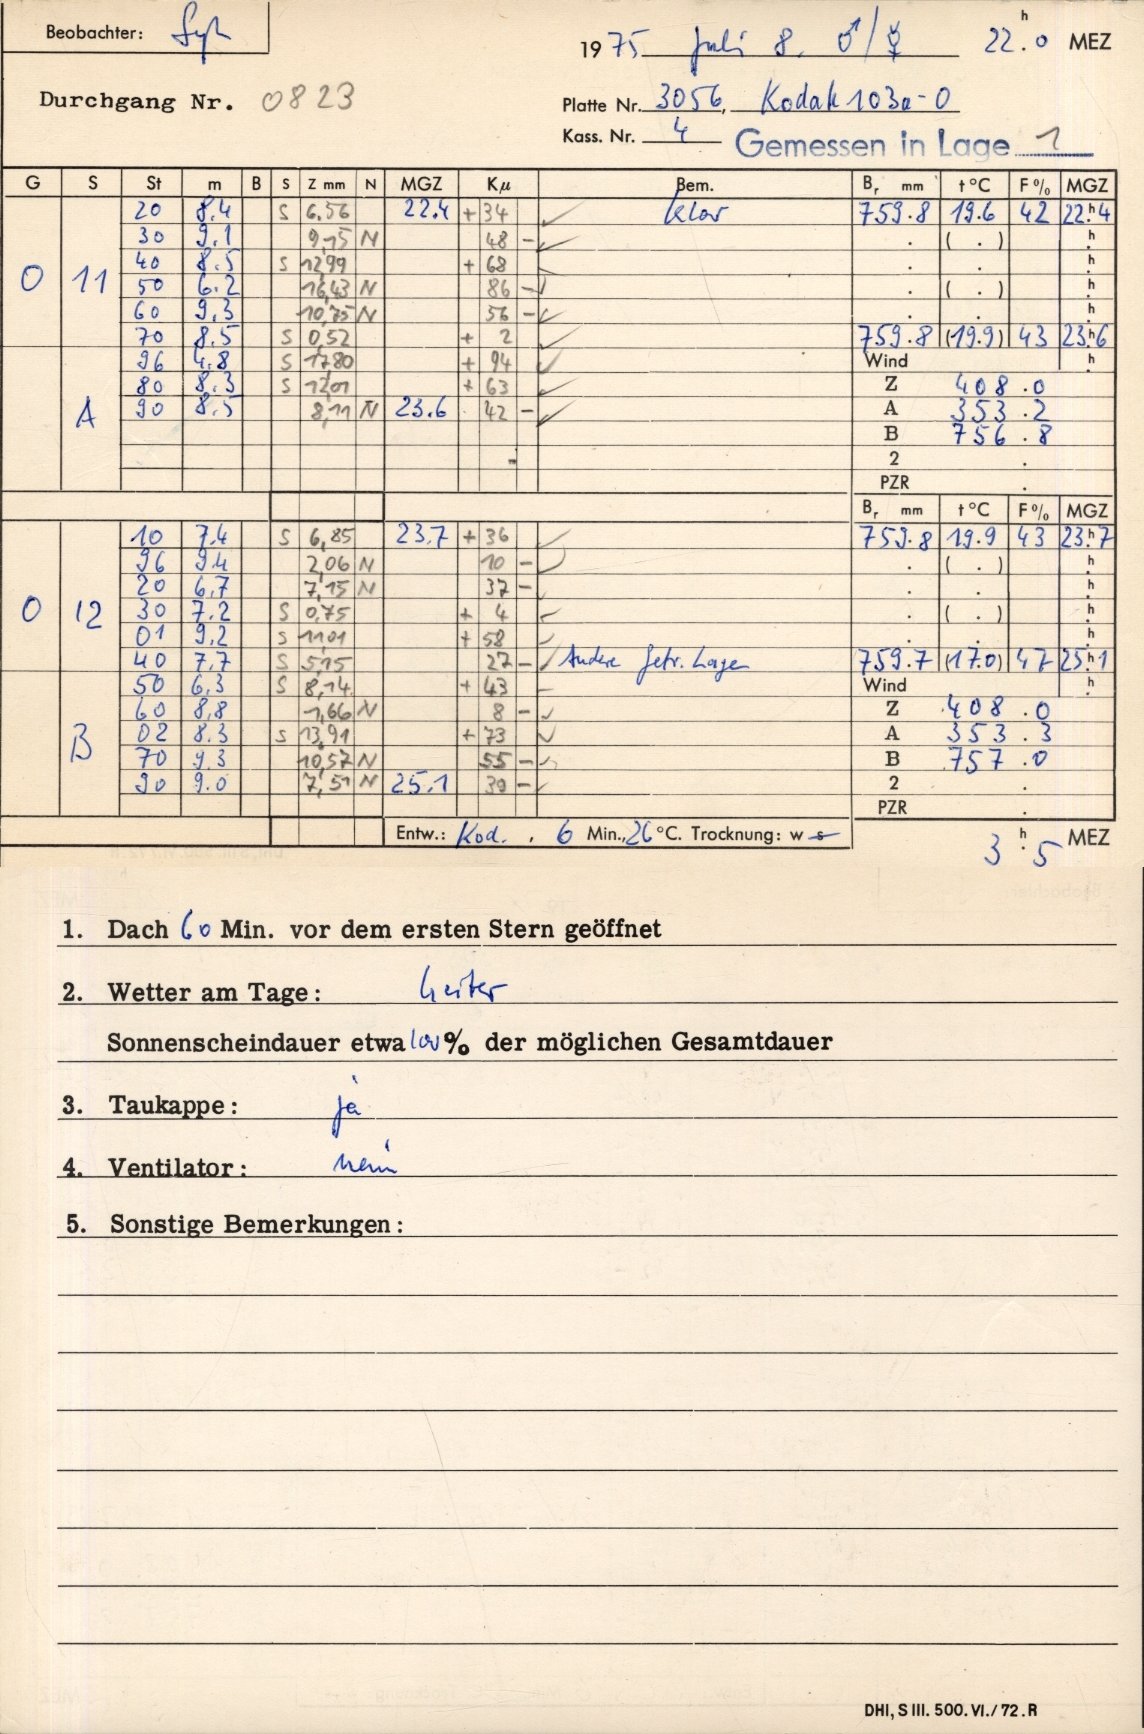 Beobachter:
1975 Juli 8. ♂/☿ 22.ʰ0 MEZ
Durchgang Nr. 0823
Platte Nr. 3056, Kodak 103a-O
Kass. Nr. 4 Gemessen in Lage 1
G S St m B S Z mm N MGZ Kμ Bem. Bᵣ mm t °C F% MGZ
20 8.4 S 6,56 22.4 +34 klar 759.8 19.6 42 22.ʰ4
30 9.1 9,15 N 48 - . ( . ) ʰ.
40 8.5 S 12,99 +68 . . ʰ.
O 11 50 6.2 16,43 N 86 - . ( . ) ʰ.
60 9,3 10,75 N 56 - . . ʰ.
70 8,5 S 0,52 + 2 759.8 (19.9) 43 23.ʰ6
96 4.8 S 17,80 + 94 Wind ʰ
80 8.3 S 12,01 + 63 Z 408.0
A 90 8.5 8,11 N 23.6 42 - A 353.2
B 756.8
- 2 .
PZR .
Bᵣ mm t °C F% MGZ
10 7.4 S 6,85 23.7 +36 759.8 19.9 43 23.ʰ7
96 9.4 2,06 N 10 - . ( . ) ʰ.
20 6,7 7,15 N 37 - . . ʰ.
O 12 30 7.2 S 0,75 + 4 . ( . ) ʰ.
01 9,2 S 11,01 +58 . . ʰ.
40 7,7 S 5,15 27 - Andere Lagen 759.7 (17.0) 47 25.ʰ1
50 6,3 S 8,14 +43 Wind ʰ.
60 8,8 1,66 N 8 - Z 408.0
02 8.3 S 13,91 +73 A 353.3
B 70 9.3 10,57 N 55 - B 757.0
90 9.0 7,51 N 25.1 39 - 2 .
PZR .
Entw.: Kod. , 6 Min., 26 °C. Trocknung: w s 3.ʰ5 MEZ
1. Dach 60 Min. vor dem ersten Stern geöffnet
2. Wetter am Tage: heiter
Sonnenscheindauer etwa 100% der möglichen Gesamtdauer
3. Taukappe: ja
4. Ventilator: nein
5. Sonstige Bemerkungen:
DHI, S III. 500. VI./72. R